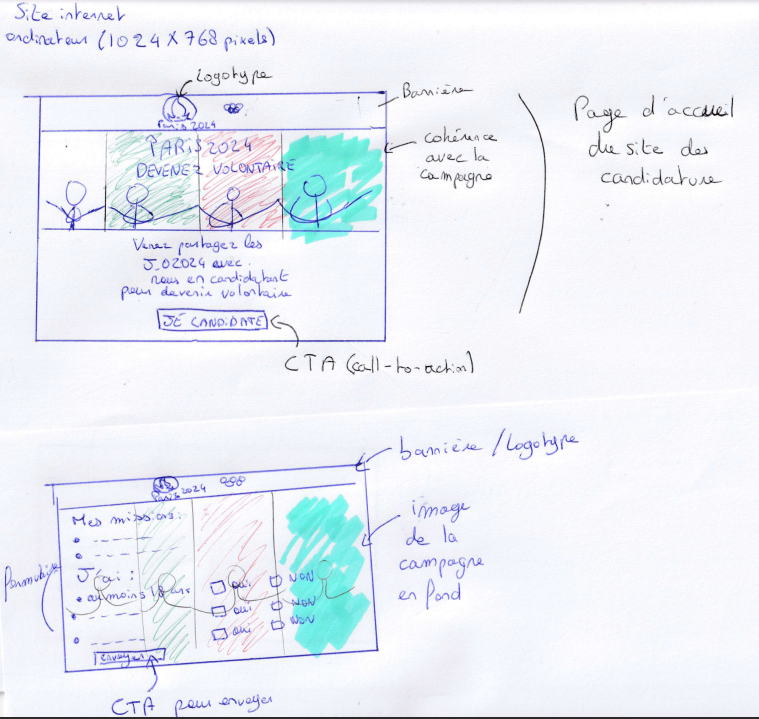 Site internet
ordinateur (1024 X 768 pixels)
Logotype
Bannière
Paris 2024
PARIS 2024
DEVENEZ VOLONTAIRE
cohérence
avec la
campagne
Page d'accueil
du site des
candidature
Venez partagez les
J.O2024 avec
nous en candidatant
pour devenir volontaire
JE CANDIDATE
CTA (call-to-action)
bannière / Logotype
Paris 2024
Mes missions:
image
de la
campagne
en fond
Formulaire
J'ai :
au moins 18 ans
oui NON
oui NON
oui NON
envoyer
CTA pour envoyer